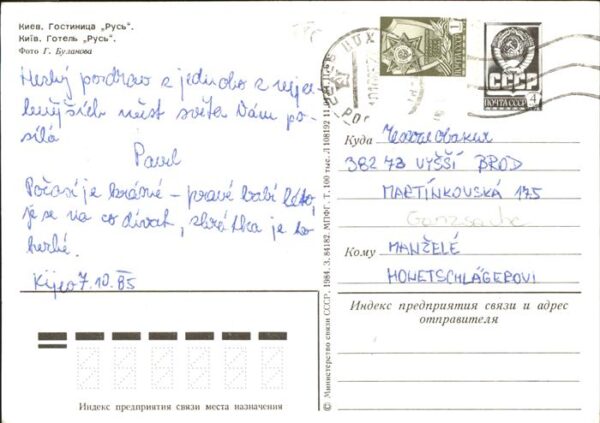 Киев. Гостиница „Русь“.
Київ. Готель „Русь“.
Фото Г. Буланова
Hezký pozdrav z jednoho z nejza
jímavějších měst světa Vám po-
sílá
Pavel
Počasí je krásné – pravé babí léto,
je se na co dívat, zkrátka je to
hezké.
Kijev 7.10.85
Индекс предприятия связи места назначения
© Министерство связи СССР. 1984. З. 84182. МПФГ. Т. 100 тыс. Л 108192
ПОЧТА СССР
1
СССР
ПОЧТА СССР
4
Куда Чехословакия
382 73 VYŠŠÍ BROD
MARTÍNKOVSKÁ 175
Кому MANŽELÉ
HONETSCHLÄGEROVI
Индекс предприятия связи и адрес
отправителя